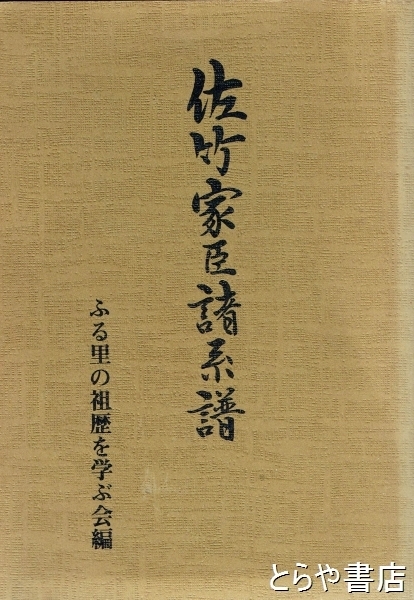 佐竹家臣諸系譜
ふる里の祖歴を学ぶ会編
とらや書店